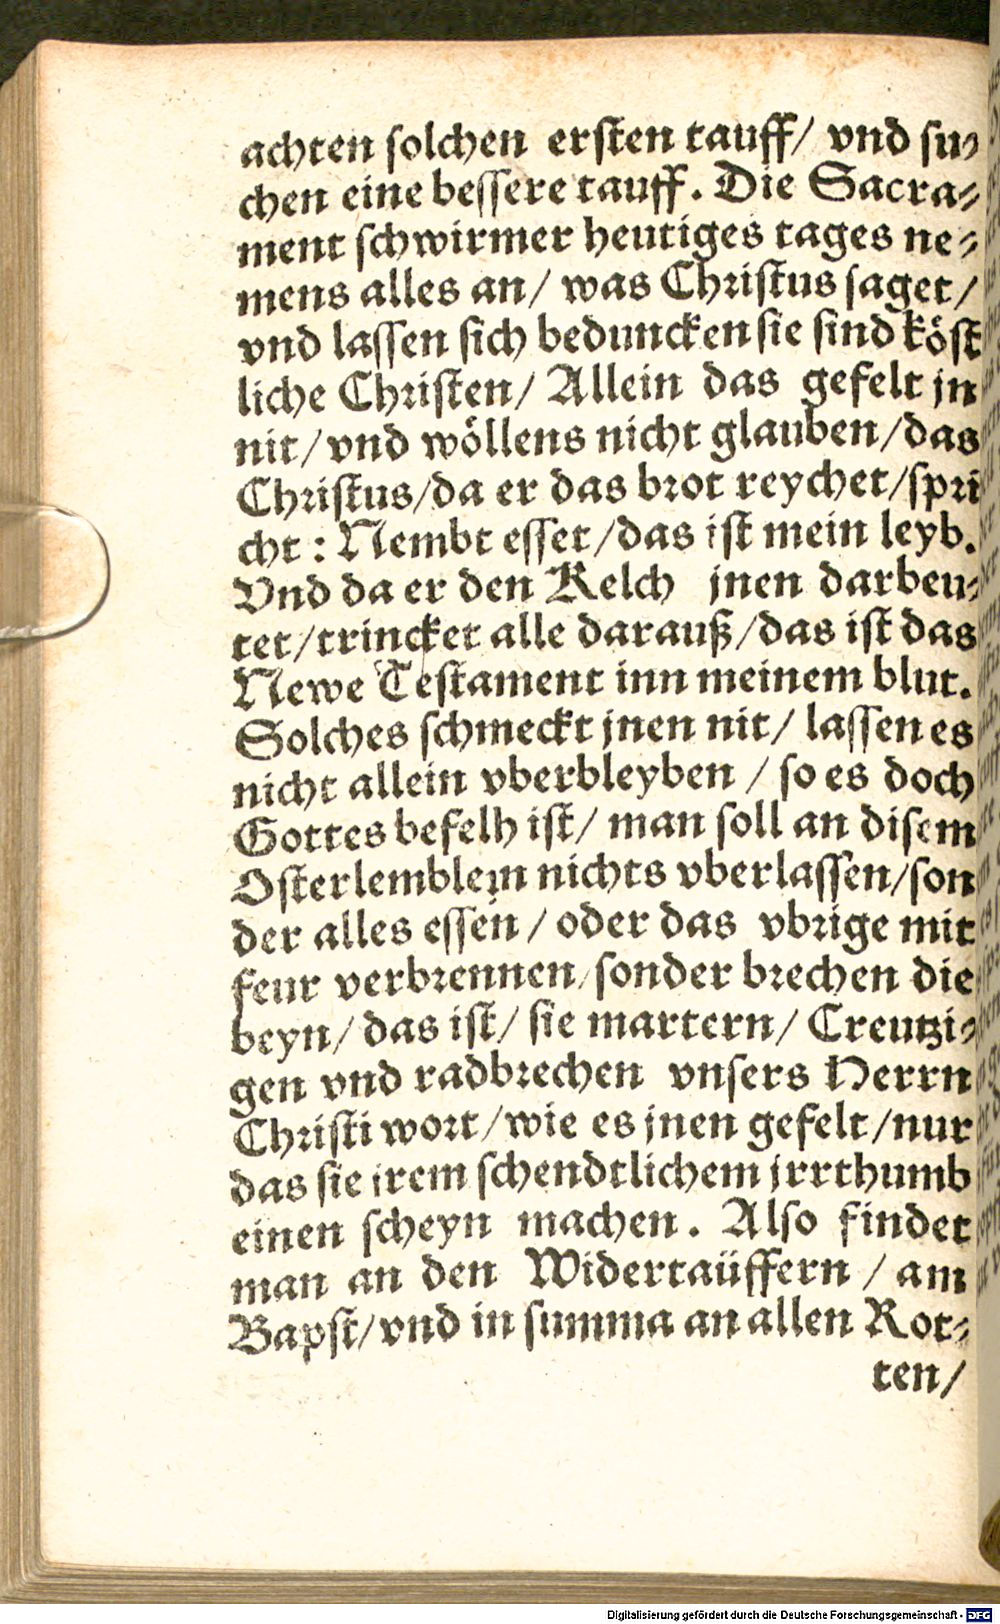 achten solchen ersten tauff/ vnd su⸗
chen eine bessere tauff. Die Sacra⸗
ment schwirmer heutiges tages ne⸗
mens alles an/ was Christus saget/
vnd lassen sich beduncken sie sind köst
liche Christen/ Allein das gefelt jn
nit/ vnd wöllens nicht glauben/ das
Christus/ da er das brot reychet/ spri
cht : Nembt esset/ das ist mein leyb.
Vnd da er den Kelch jnen darbeu⸗
tet/ trincket alle darauß/ das ist das
Newe Testament inn meinem blut.
Solches schmeckt jnen nit/ lassen es
nicht allein vberbleyben / so es doch
Gottes befelh ist/ man soll an disem
Osterlemblein nichts vberlassen/ son
der alles essen / oder das vbrige mit
feur verbrennen/ sonder brechen die
beyn/ das ist/ sie martern/ Creutzi⸗
gen vnd radbrechen vnsers Herrn
Christi wort/ wie es jnen gefelt/ nur
das sie irem schendtlichem jrrthumb
einen scheyn machen. Also findet
man an den Widertaüffern / am
Bapst/ vnd in summa an allen Rot⸗
ten/
Digitalisierung gefördert durch die Deutsche Forschungsgemeinschaft - DFG